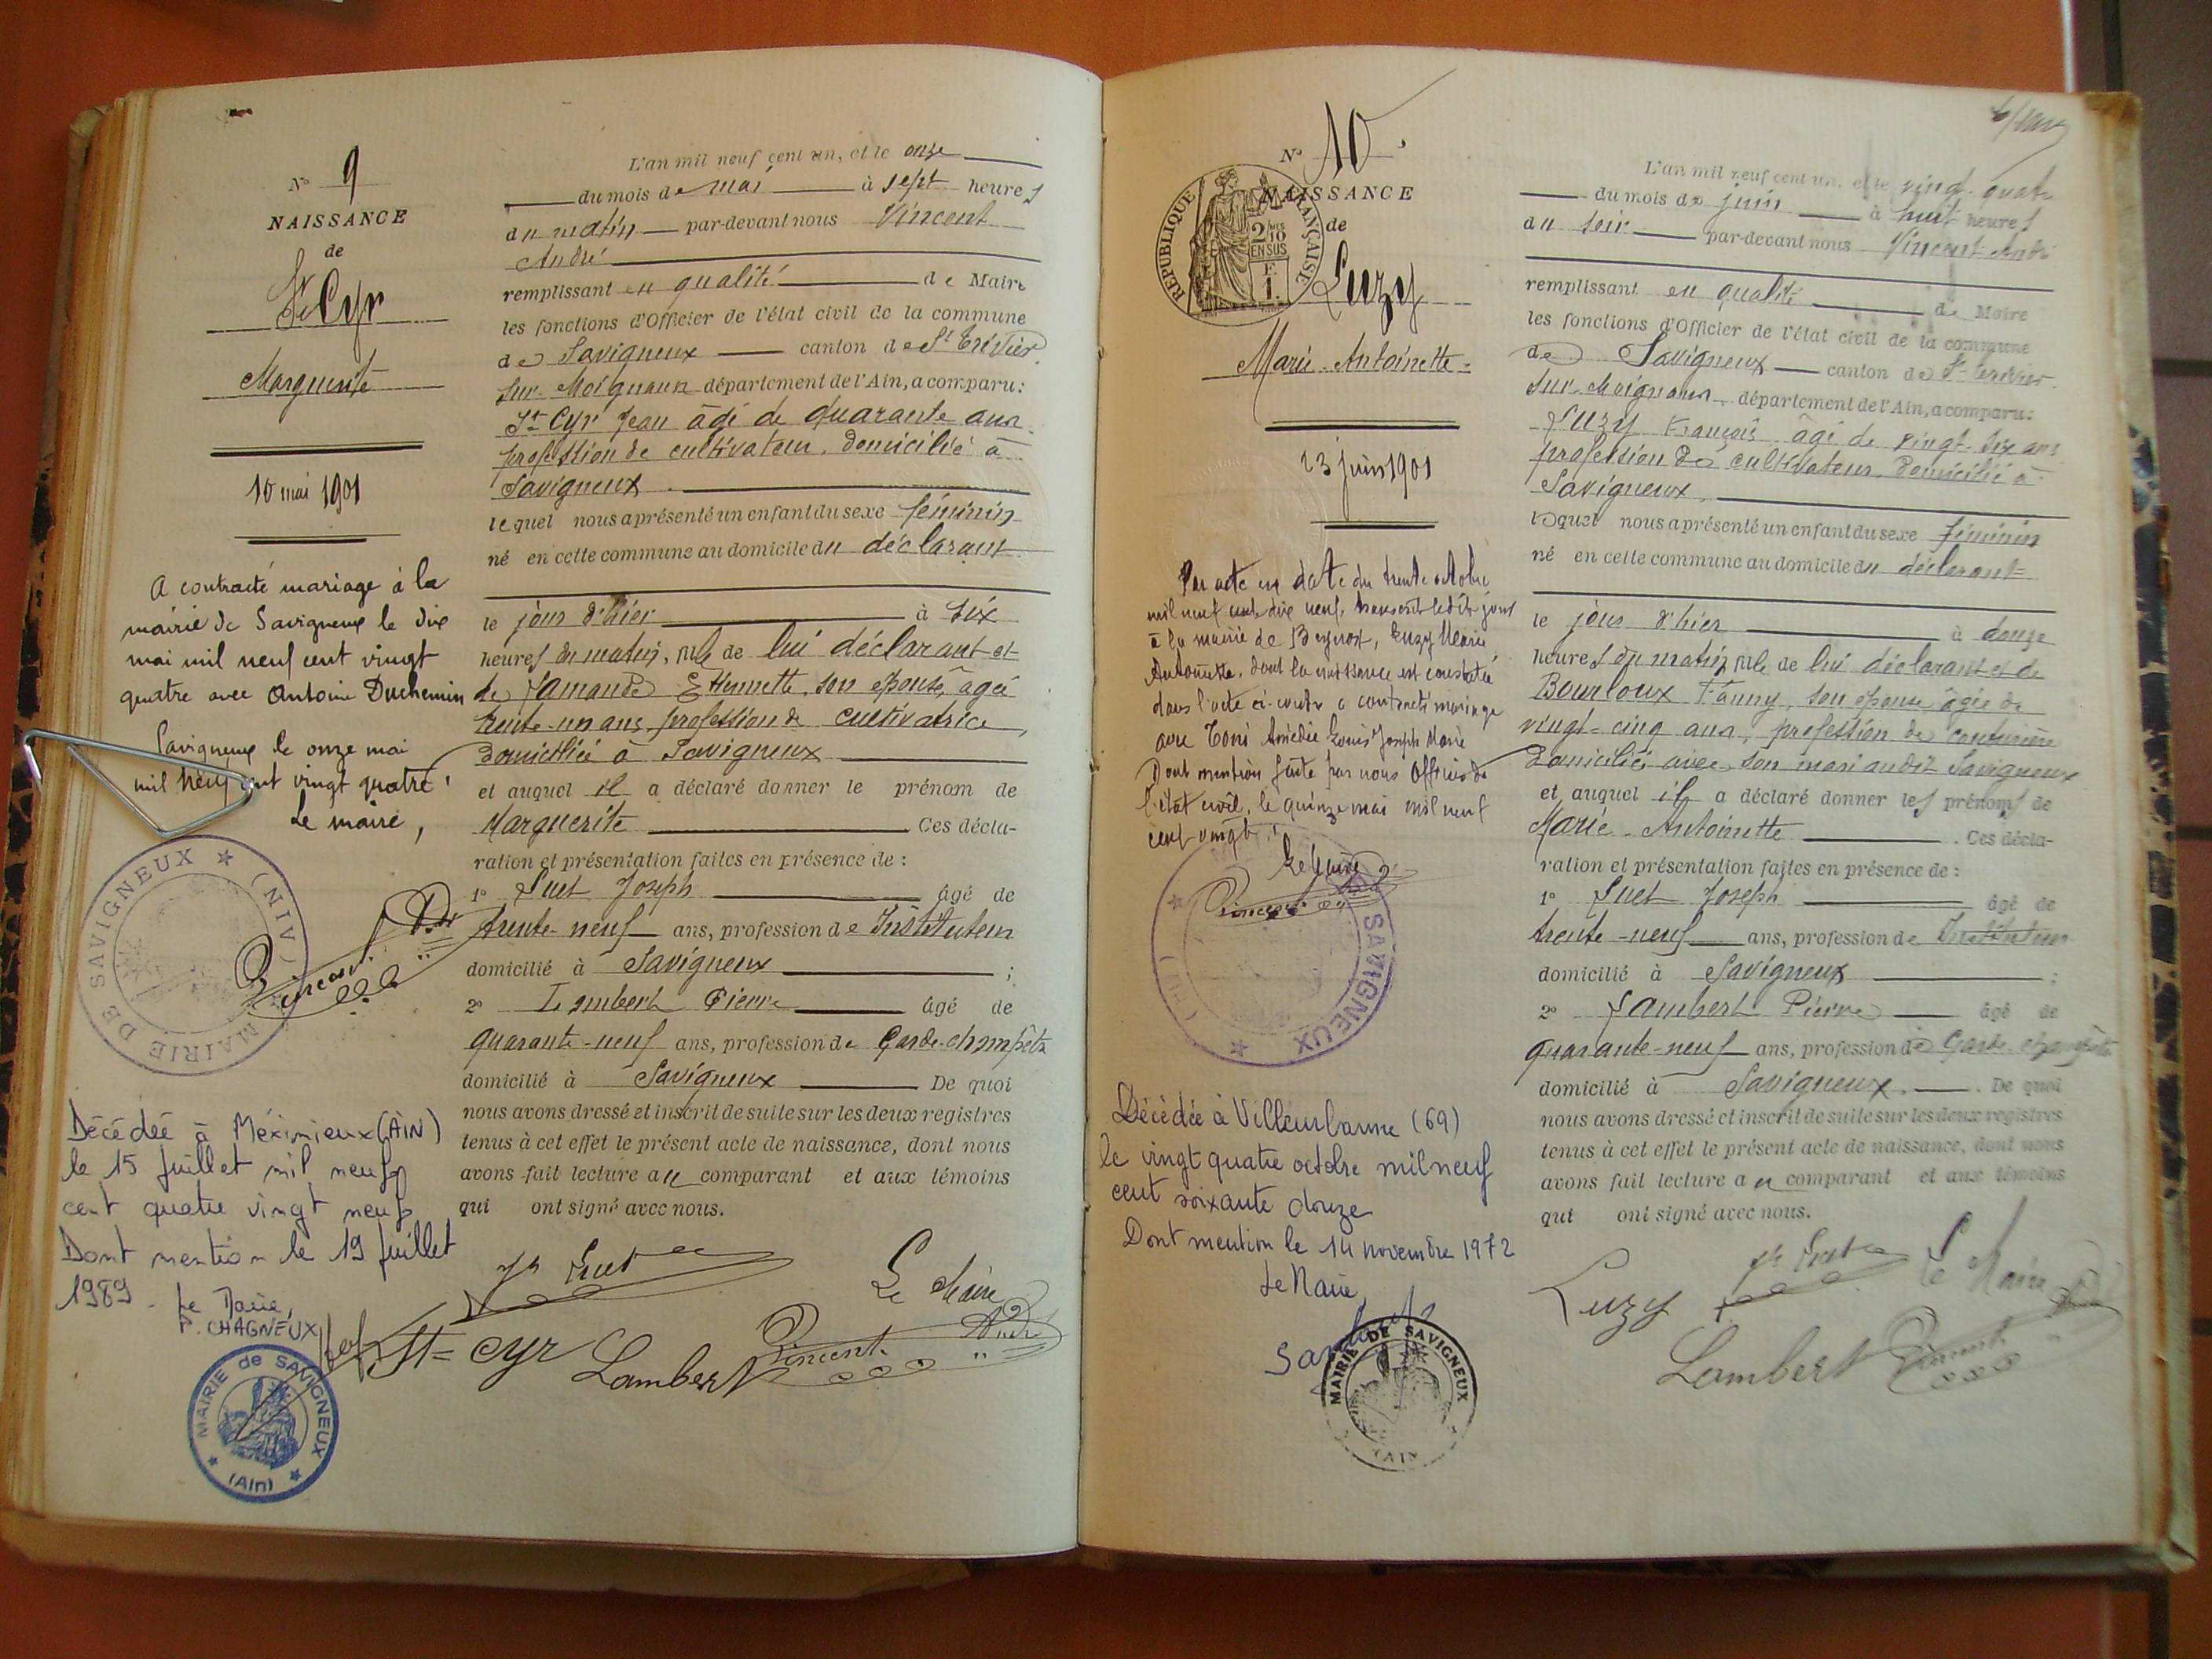 N° 9
NAISSANCE
de
St Cyr
Marguerite
10 mai 1901
A contracté mariage à la
mairie de Savigneux le dix
mai mil neuf cent vingt
quatre avec Antoine Duchemin
Savigneux le onze mai
mil neuf cent vingt quatre
Le maire,
MAIRIE DE SAVIGNEUX (AIN)
Vincent
Décédée à Méximieux (AIN)
le 15 juillet mil neuf
cent quatre vingt neuf
Dont mention le 19 juillet
1989 - Le Maire,
P. CHAGNEUX
MAIRIE de SAVIGNEUX
(Ain)
L'an mil neuf cent un, et le onze
du mois de mai à sept heures
du matin par-devant nous Vincent
André
remplissant en qualité de Maire
les fonctions d'Officier de l'état civil de la commune
de Savigneux canton de St Trivier
sur-Moignans département de l'Ain, a comparu:
St Cyr Jean âgé de quarante ans
profession de cultivateur, domicilié à
Savigneux
lequel nous a présenté un enfant du sexe féminin
né en cette commune au domicile du déclarant
le jour d'hier à six
heures du matin, fille de lui déclarant et
de Etiennette, son épouse, âgée
trente-un ans, profession de cultivatrice,
domiciliée à Savigneux
et auquel il a déclaré donner le prénom de
Marguerite Ces décla-
ration et présentation faites en présence de :
1° Suet Joseph âgé de
trente-neuf ans, profession de Instituteur
domicilié à Savigneux ;
2° Lambert Pierre âgé de
quarante-neuf ans, profession de Garde-champêtre
domicilié à Savigneux De quoi
nous avons dressé et inscrit de suite sur les deux registres
tenus à cet effet le présent acte de naissance, dont nous
avons fait lecture au comparant et aux témoins
qui ont signé avec nous.
Jh Suet Le Maire
St Cyr Lambert Vincent André
N° 10.
NAISSANCE
de
RÉPUBLIQUE FRANÇAISE
2/10
EN SUS
Luzy
Marie-Antoinette
23 juin 1901
Par acte en date du trente octobre
mil neuf cent dix neuf, transcrit ledit jour
à la mairie de Beynost, Luzy Marie
Antoinette, dont la naissance est constatée
dans l'acte ci-contre a contracté mariage
avec Toni Amédée Louis Joseph Marie
Dont mention faite par nous Officier de
l'état civil, le quinze mai mil neuf
cent vingt.
Le Maire
Vincent
SAVIGNEUX
Décédée à Villeurbanne (69)
le vingt quatre octobre mil neuf
cent soixante douze
Dont mention le 14 novembre 1972
Le Maire,
MAIRIE DE SAVIGNEUX
(AIN)
L'an mil neuf cent un, et le vingt-quatre
du mois de juin à huit heures
du soir par-devant nous Vincent André
remplissant en qualité de Maire
les fonctions d'Officier de l'état civil de la commune
de Savigneux canton de St Trivier
sur-Moignans, département de l'Ain, a comparu:
Luzy François âgé de vingt-six ans
profession de cultivateur, domicilié à
Savigneux
lequel nous a présenté un enfant du sexe féminin
né en cette commune au domicile du déclarant
le jour d'hier à douze
heures du matin fille de lui déclarant et de
Bourloux Fanny, son épouse, âgée de
vingt-cinq ans, profession de couturière
Domiciliée avec son mari audit Savigneux
et auquel il a déclaré donner les prénoms de
Marie-Antoinette Ces décla-
ration et présentation faites en présence de :
1° Suet Joseph âgé de
trente-neuf ans, profession de Instituteur
domicilié à Savigneux ;
2° Lambert Pierre âgé de
quarante-neuf ans, profession de Garde champêtre
domicilié à Savigneux. De quoi
nous avons dressé et inscrit de suite sur les deux registres
tenus à cet effet le présent acte de naissance, dont nous
avons fait lecture au comparant et aux témoins
qui ont signé avec nous.
Luzy Jh Suet Le Maire
Lambert Vincent